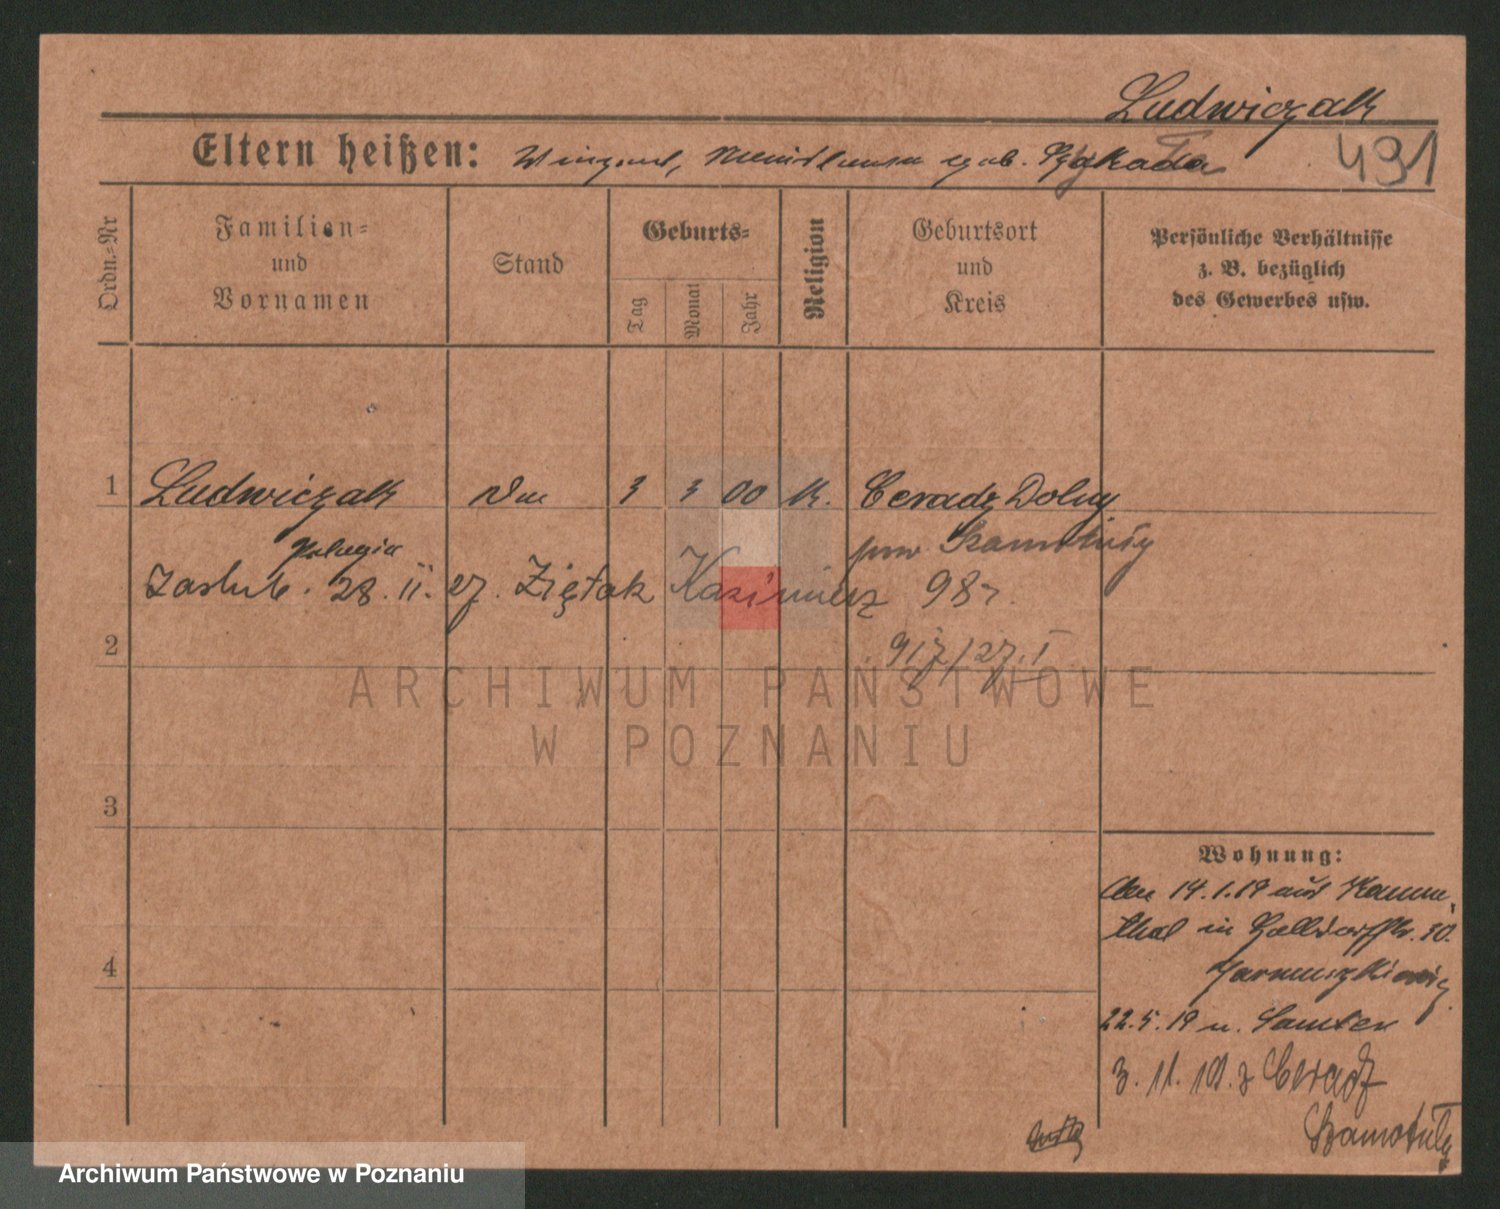 Ludwiczak
Eltern heißen: geb.
491
Ordn.-Nr
Familien-
und
Vornamen
Stand
Geburts-
Tag
Monat
Jahr
Religion
Geburtsort
und
Kreis
Persönliche Verhältnisse
z. B. bezüglich
des Gewerbes usw.
1 Ludwiczak 3 3 00 K. Ceradz Dolny
Pelagia pow Szamotuły
zaślub. 28. II. 27. Ziętak Kazimierz 98 r.
2 917/27. I
ARCHIWUM PAŃSTWOWE
W POZNANIU
3
Wohnung:
14.1.19 aus
thal in 30.
4
22.5.19 n. Samter
3. 11. 19. z Ceradz
Szamotuły
Archiwum Państwowe w Poznaniu